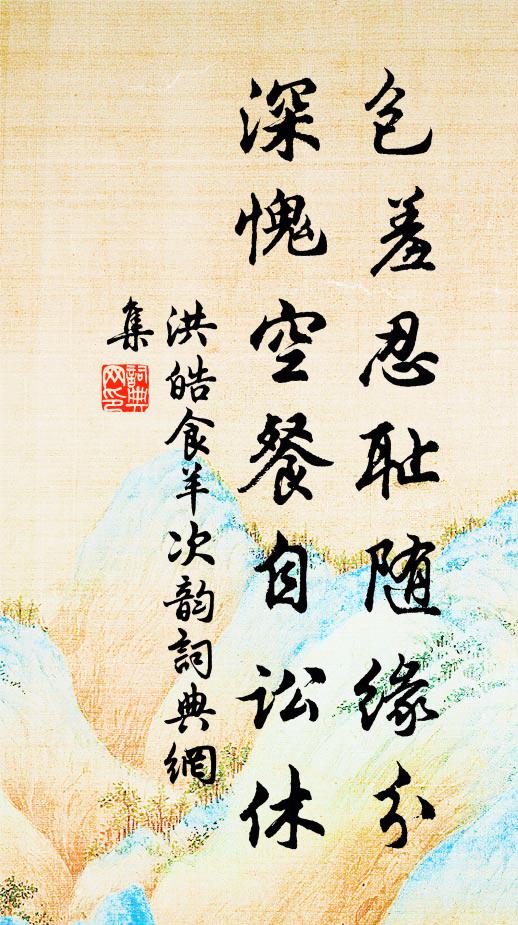 包羞忍耻随缘分
深愧空餐自讼休
洪皓食羊次韵詞典網
集
詞典网印